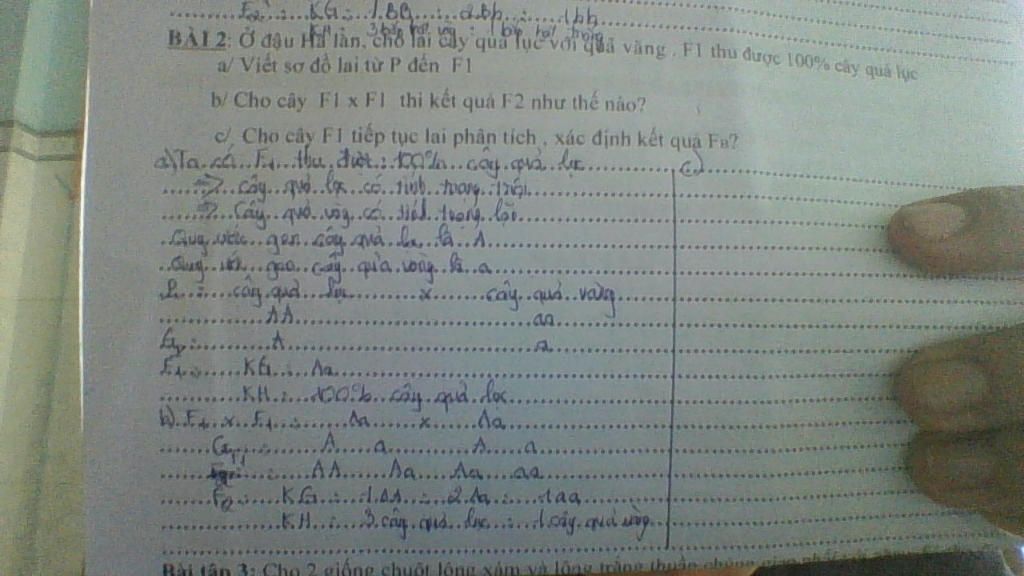 F2 : KG : 1BB : 2Bb : 1bb
BÀI 2: Ở đậu Hà lan, cho lai cây quả lục với quả vàng . F1 thu được 100% cây quả lục
a/ Viết sơ đồ lai từ P đến F1
b/ Cho cây F1 x F1 thì kết quả F2 như thế nào?
c/ Cho cây F1 tiếp tục lai phân tích , xác định kết quả FB?
a) Ta có F1 thu được : 100% cây quả lục
=> cây quả lục có tính trạng trội
=> Cây quả vàng có tính trạng lặn
Quy ước gen cây quả lục là A
Quy ước gen cây quả vàng là a
P : cây quả lục x cây quả vàng
AA aa
Gp : A a
F1 : KG : Aa
KH : 100% cây quả lục
b) F1 x F1 : Aa x Aa
GF1 : A a A a
AA Aa Aa aa
F2 : KG : 1AA : 2Aa : 1aa
KH : 3 cây quả lục : 1 cây quả vàng
c)
Bài tập 3: Cho 2 giống chuột lông xám và lông trắng thuần chủng